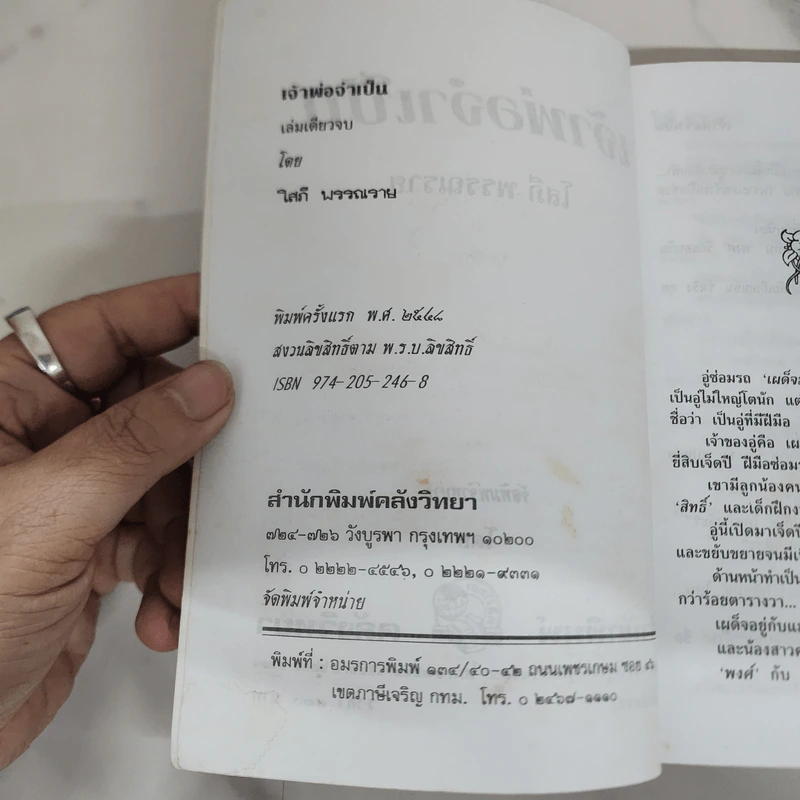 เจ้าพ่อจำเป็น
เล่มเดียวจบ
โดย
โสภี พรรณราย
พิมพ์ครั้งแรก พ.ศ. ๒๕๔๘
สงวนลิขสิทธิ์ตาม พ.ร.บ.ลิขสิทธิ์
ISBN 974-205-246-8
สำนักพิมพ์คลังวิทยา
๗๒๔-๗๒๖ วังบูรพา กรุงเทพฯ ๑๐๒๐๐
โทร. ๐ ๒๒๒๒-๔๕๔๖, ๐ ๒๒๒๑-๙๓๓๑
จัดพิมพ์จำหน่าย
พิมพ์ที่ : อมรการพิมพ์ ๑๓๔/๔๐-๔๒ ถนนเพชรเกษม ซอย
เขตภาษีเจริญ กทม. โทร. ๐ ๒๔๖๗-๑๑๑๐
อู่ซ่อมรถ 'เผด็จ
เป็นอู่ไม่ใหญ่โตนัก แต่
ชื่อว่า เป็นอู่ที่มีฝีมือ
เจ้าของอู่คือ เผ
ยี่สิบเจ็ดปี ฝีมือซ่อมร
เขามีลูกน้องคน
'สิทธิ์' และเด็กฝึกง
อู่นี้เปิดมาเจ็ดปี
และขยับขยายจนมีเ
ด้านหน้าทำเป็น
กว่าร้อยตารางวา...
เผด็จอยู่กับแม
และน้องสาวค
'พงศ์' กับ